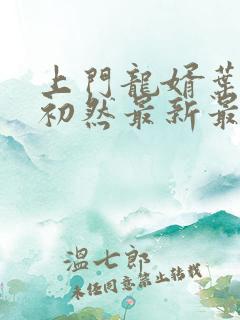 上門龍婿葉
初然最新最
溫七郎
未經同意禁止轉載